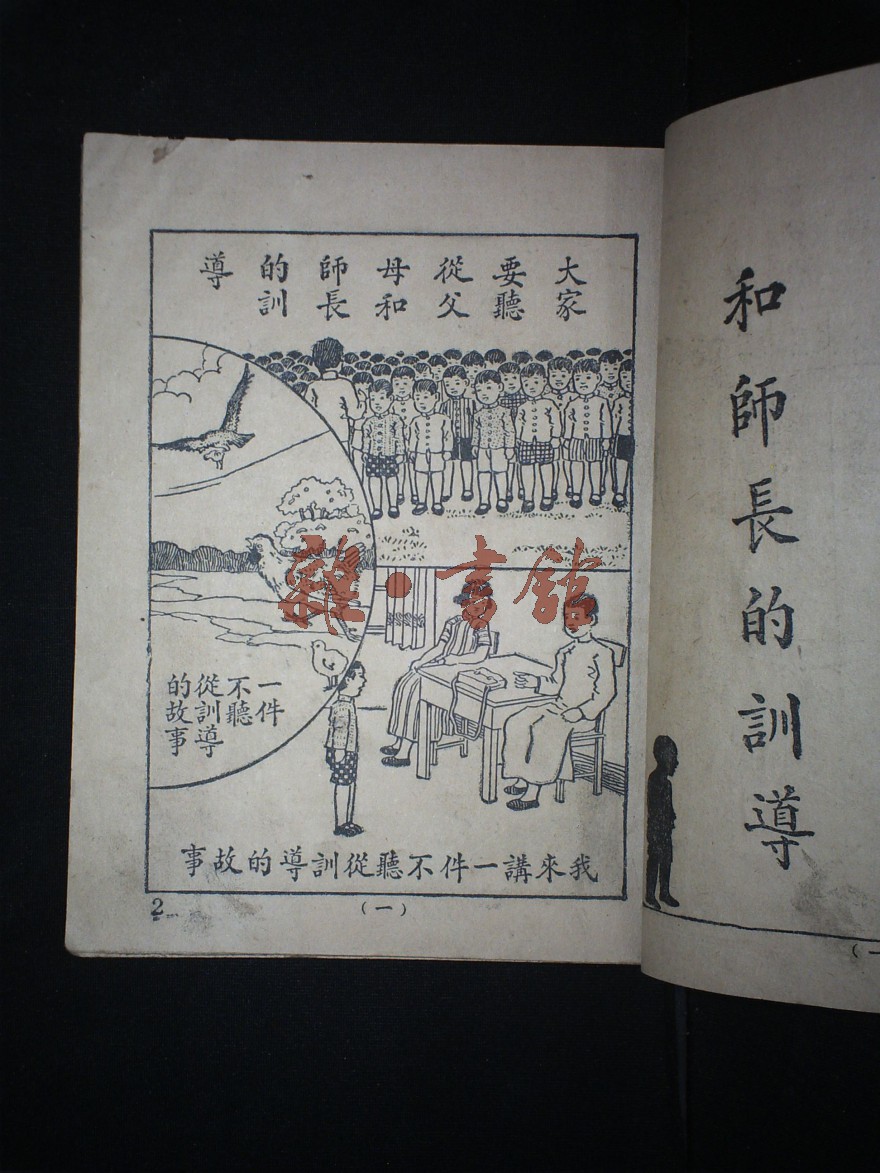 和師長的訓導
(一
大家
要聽
從父
母和
師長
的訓
導
一件
不聽
從訓導
的故事
我來講一件不聽從訓導的故事
2
(一)
雜·書館